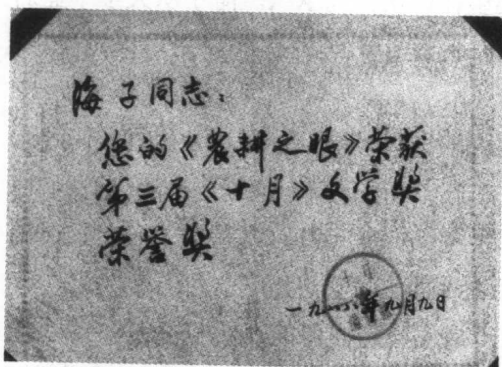 海子同志：
您的《农耕之眼》荣获
第三届《十月》文学奖
荣誉奖
一九八八年九月九日